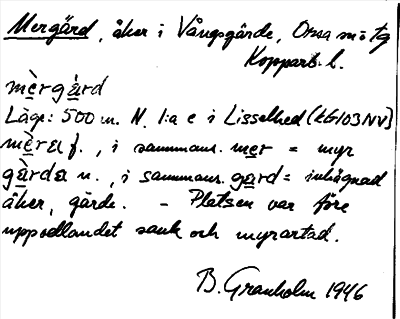 Mergärd, åker i Vångsgärde, Orsa sn o tg
Kopparb. l.
mèrgàrd
Läge: 500 m. N. l:a e i Lisselhed (kG103NV)
mèra f., i sammans. mer = myr
gàrda n., i sammans. gard = inhägnad
åker, gärde. - Platsen var före
uppodlandet sank och myrartad.
B. Granholm 1946